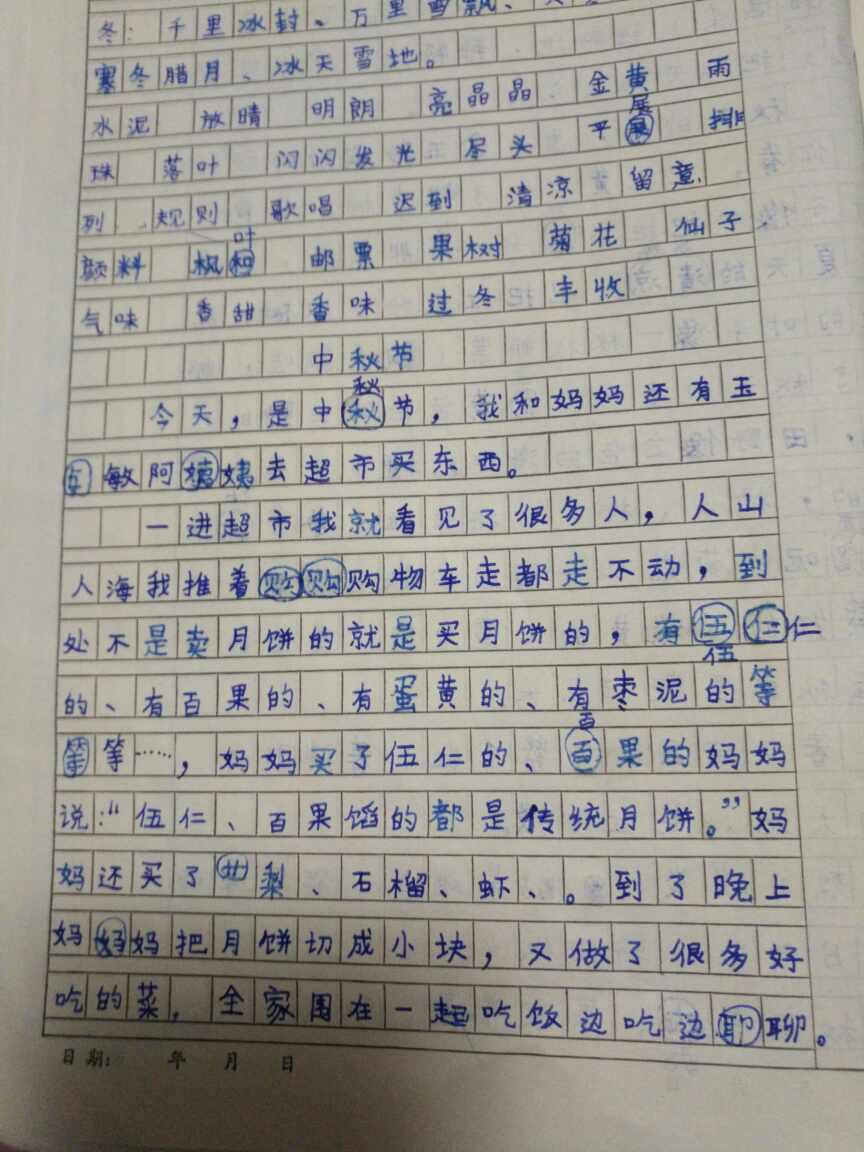 冬：千里冰封、万里雪飘、
寒冬腊月、冰天雪地。
水泥 放晴 明朗 亮晶晶 金黄 雨
珠 落叶 闪闪发光 尽头 平展 排
列 规则 歌唱 迟到 清凉 留意
颜料 枫叶 邮票 果树 菊花 仙子
气味 香甜 香味 过冬 丰收
中秋节
今天，是中秋节，我和妈妈还有玉
敏阿姨去超市买东西。
一进超市我就看见了很多人，人山
人海我推着购物车走都走不动，到
处不是卖月饼的就是买月饼的，有伍仁
的、有百果的、有蛋黄的、有枣泥的等
等……，妈妈买了伍仁的、百果的妈妈
说：“伍仁、百果馅的都是传统月饼。”妈
妈还买了梨、石榴、虾、。到了晚上
妈妈把月饼切成小块，又做了很多好
吃的菜，全家围在一起吃饭边吃边聊。
日期： 年 月 日